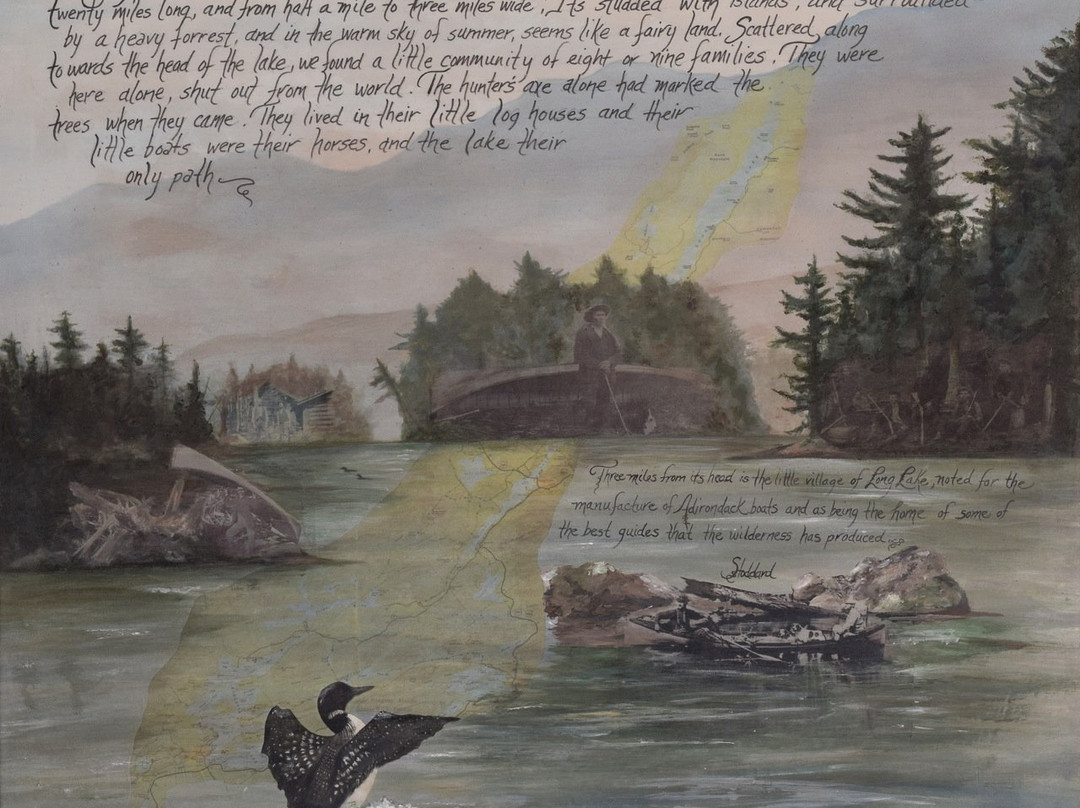 twenty miles long, and from half a mile to three miles wide. Its studded with islands, and surrounded
by a heavy forrest, and in the warm sky of summer, seems like a fairy land. Scattered along
towards the head of the lake, we found a little community of eight or nine families. They were
here alone, shut out from the world. The hunter's axe alone had marked the
trees when they came. They lived in their little log houses and their
little boats were their horses, and the lake their
only path
Three miles from its head is the little village of Long Lake, noted for the
manufacture of Adirondack boats and as being the home of some of
the best guides that the wilderness has produced
Stoddard